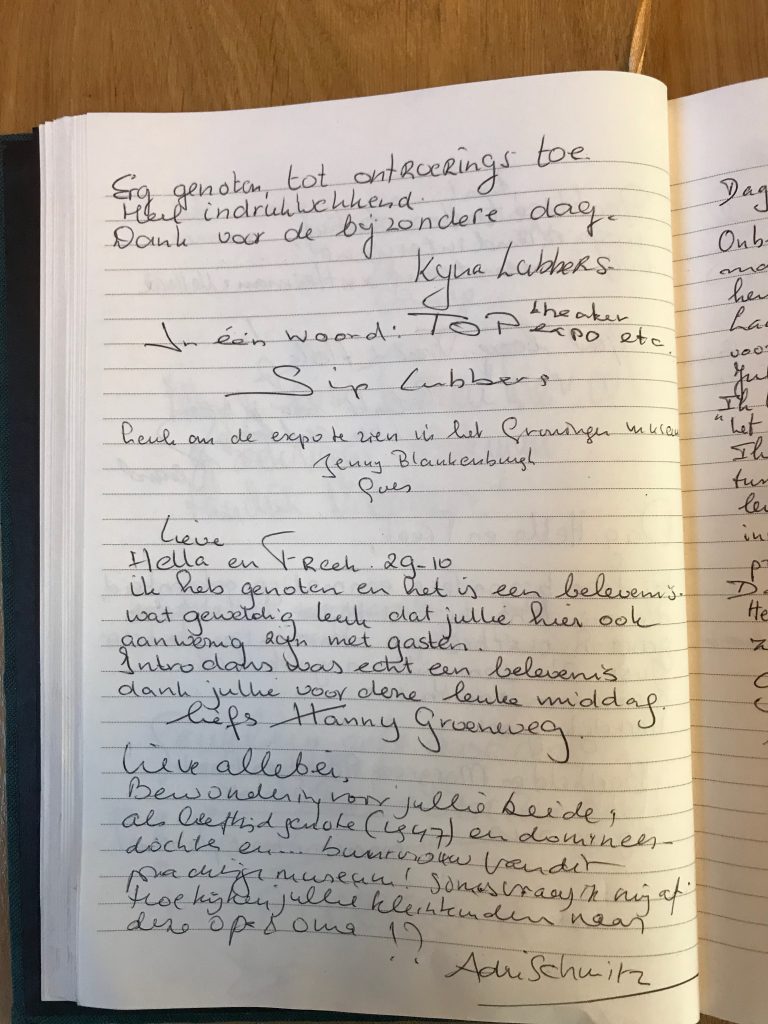 Erg genoten, tot ontroerings toe.
Heel indrukwekkend.
Dank voor de bijzondere dag.
Kyna Lubbers.
In één woord: TOP theater
expo etc.
Sip Lubbers
Leuk om de expo te zien in het Groninger museum
Jenny Blankenburgh
Goes
Lieve
Hella en Freek. 29-10
ik heb genoten en het is een belevenis.
wat geweldig leuk dat jullie hier ook
aanwezig zijn met gasten.
Introdans was echt een belevenis
dank jullie voor deze leuke middag.
liefs Hanny Groeneveg.
Lieve allebei,
Bewondering voor jullie beide,
als leeftijdgenote (1947) en dominees-
dochter en... buurvrouw van dit
prachtige museum! Soms vraag ik mij af
hoe kijken jullie kleinkinderen naar
deze opa & oma!?
Adri Schmitz
Dag
Onb
ma
hen
voor
Ik
"het
Ik
tun
in
He